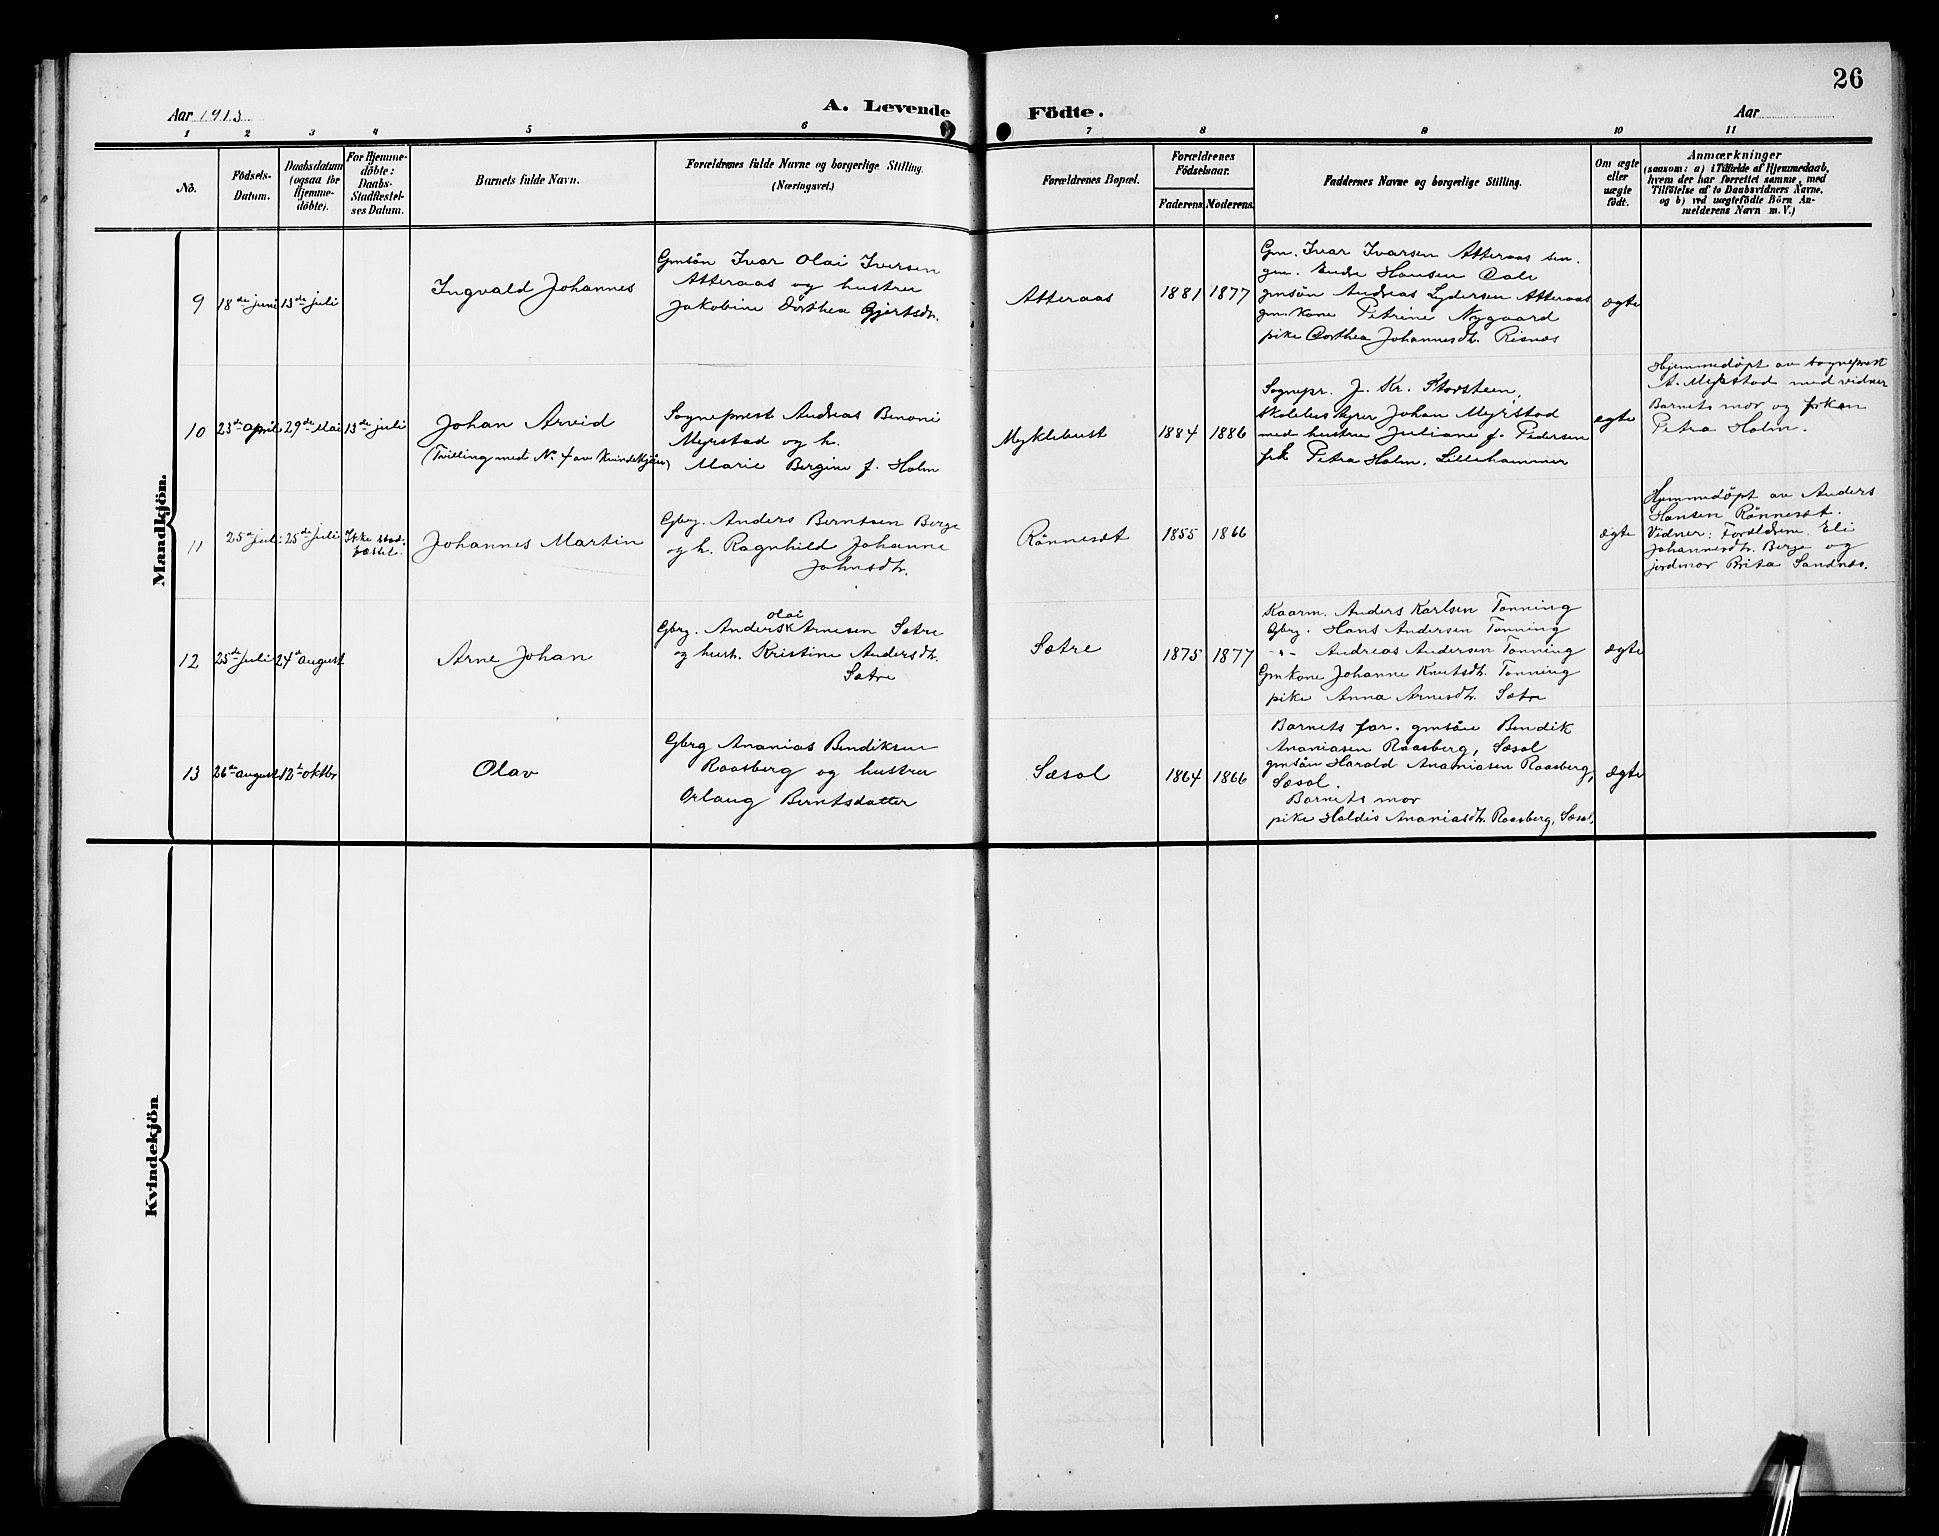 26
Aar 1913
A. Levende Födte.
Aar
1 2 3 4 5 6 7 8 9 10 11
No.
Födsels-Datum.
Daabsdatum (ogsaa for Hjemme-döbte).
For Hjemme-döbte: Daabs-Stadfæstel-ses Datum.
Barnets fulde Navn.
Forældrenes fulde Navne og borgerlige Stilling.
(Næringsvei.)
Forældrenes Bopæl.
Forældrenes Födselsaar.
Faderens Moderens
Faddernes Navne og borgerlige Stilling.
Om ægte eller uægte födt.
Anmærkninger
(saasom: a) i Tilfælde af Hjemmedaab,
hvem der har forrettet samme, med
Tilföielse af to Daabsvidners Navne,
og b) ved uægtefödte Börn An-
melderens Navn m. V.)
Mandkjön.
9
18de juni
13de juli
Ingvald Johannes
Gmsön Ivar Olai Iversen
Atteraas og hustru
Jakobine Dorthea Gjertsdtr.
Atteraas
1881
1877
Gm. Ivar Ivarsen Atteraas sen.
gm. Endre Hansen Dale
gmsön Andreas Lydersen Atteraas
gm. kone Petrine Nygaard
pike Dorthea Johannesdtr. Risnæs
ægte
10
23de april
29de Mai
13de juli
Johan Arvid
(Tvilling med No. 4 av Kvindekjøn)
Sogneprest Andreas Benoni
Myrstad og h.
Marie Bergine f. Holm
Myklebust
1884
1886
Sognepr. J. Kr. Storsteen,
skolebestyrer Johan Myrstad
med hustru Juliane f. Pedersen
frk Petra Holm, Lillehammer
ægte
Hjemmedöpt av sogneprest
A. Myrstad med vidner
Barnets mor og frøken
Petra Holm.
11
25de juli
25de juli
Ikke stad-
fæstet.
Johannes Martin
Gbrg. Anders Berntsen Berge
og h. Ragnhild Johanne
Johnsdtr.
Rönnesæt
1855
1866
ægte
Hjemmedöpt av Anders
Hansen Rönnesæt.
Vidner: Forældrene, Eli
Johannesdtr. Berge og
jordmor Brita Sandnæs.
12
25de juli
24de august
Arne Johan
Olai
Gbrg. Anders Arnesen Sætre
og hust. Kristine Andersdtr.
Sætre
Sætre
1875
1877
Kaarm. Anders Karlsen Tonning
Gbrg. Hans Andersen Tonning
-"- Andreas Andersen Tonning
Gmkone Johanne Knutsdtr. Tonning
pike Anna Arnesdtr. Sætre
ægte
13
26de august
12te oktbr
Olav
Gbrg Ananias Bendiksen
Raasberg og hustru
Orlaug Berntsdatter
Sæsol
1864
1866
Barnets far. gmsön Bendik
Ananiasen Raasberg, Sæsol
gmsön Harald Ananiasen Raasberg,
Sæsol.
Barnets mor
pike Haldis Ananiasdtr. Raasberg, Sæsol,
ægte
Kvindekjön